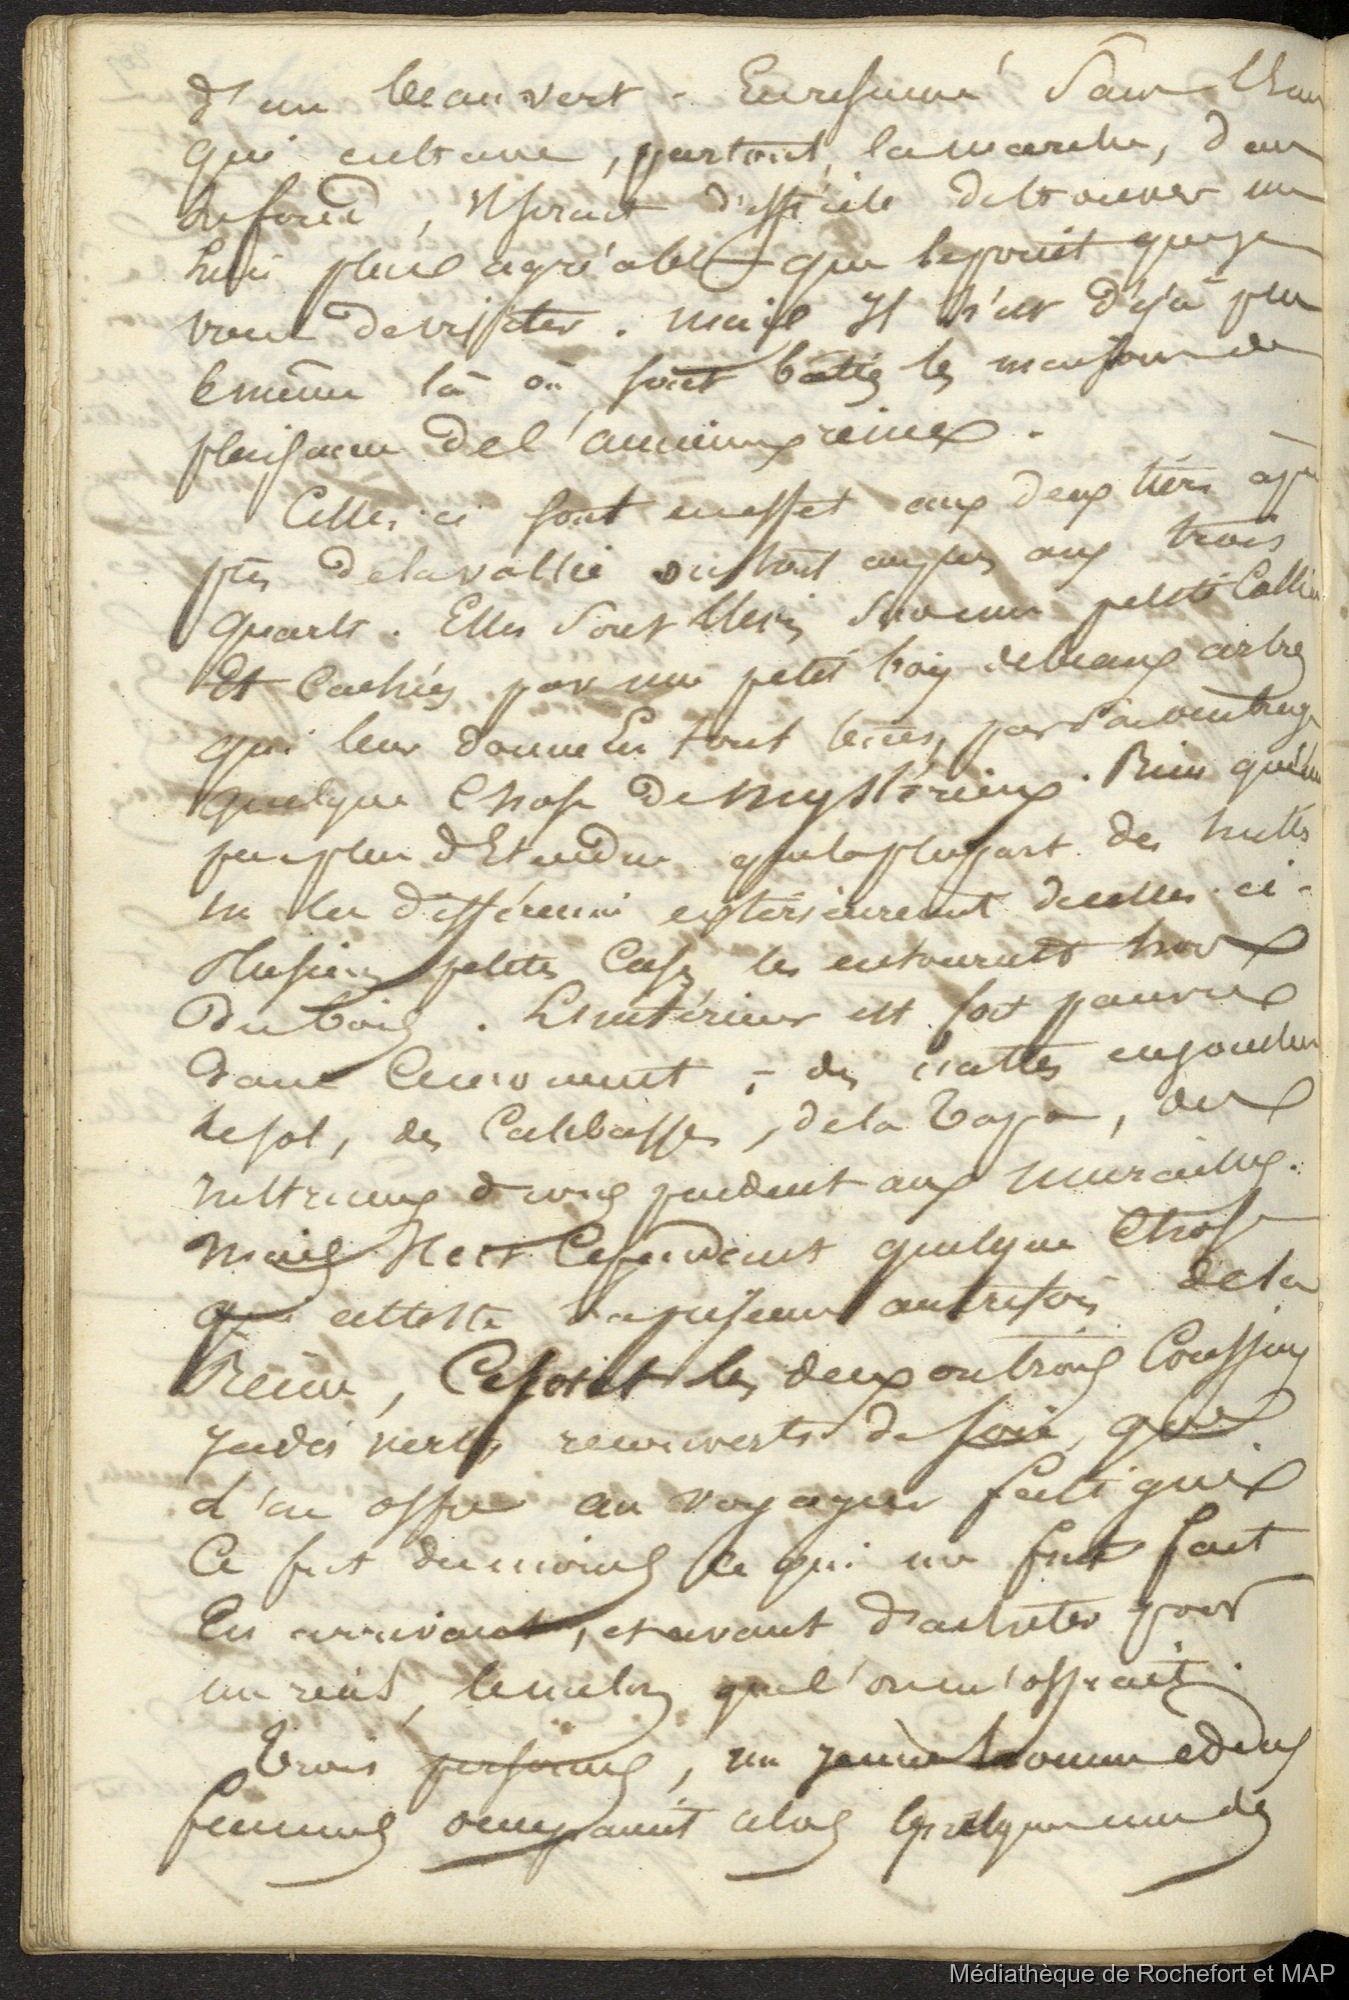 d'un beau vert. En résumé sans l'eau
qui entrave, partout, la marche, dans
le fond, il serait difficile de trouver un
lieu plus agréable que le point que je
viens de visiter. Mais il n'est déjà plus
le même là où sont bâties les maisons de
plaisance de l'ancienne reine.
Celles-ci sont en effet aux deux tiers à peu
près de la vallée ou tout au plus aux trois
quarts. Elles sont sur une petite Colline
Et cachées par un petit bois de beaux arbres
qui leur donne En tout temps, par son ombrage
quelque chose de mystérieux. Rien qu'un
peu plus d'Etendue que la plupart des huttes
ne les différencie extérieurement de celles-ci.
Plusieurs petites Cases les entourent hors
du bois. L'intérieur est fort pauvre
dans ce moment ; des nattes en jonchent
le sol, des Calebasses, de la Tapa, des
pendent aux murailles.
Mais Il est Cependant quelque Chose
qui atteste la puissance autrefois de la
Reine, Ce sont les deux ou trois Coussins
jadis verts, recouverts de soie, que
l'on offre au voyageur fatigué
Ce fut du moins ce qui me fut fait
En arrivant, et avant d'acheter pour
un rial, le melon que l'on m'offrait.
Trois personnes, un jeune homme et deux
femmes occupaient alors quelques unes des